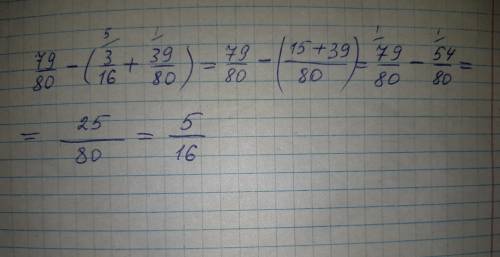 79/80 − (3/16 ⁵ + 39/80 ¹) = 79/80 − (15+39/80) = 79/80 ¹ − 54/80 ¹ =
= 25/80 = 5/16